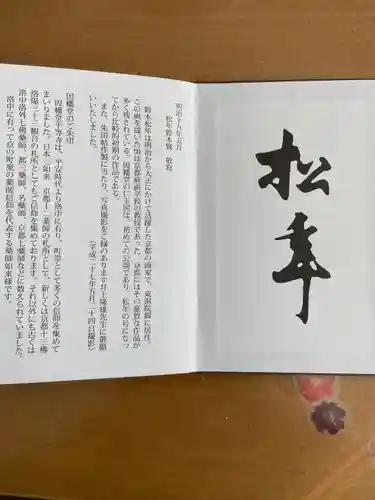 松年
明治十九年五月
松年鈴木賢 敬寫
鈴木松年は明治から大正にかけて活躍した京都の画家で、東洞院錦に居住。
この画を描いた頃は京都府画学校の教授であった。京都にはその豪放な作品が
多く残されている。因幡堂の仁王図は、初めての公開であり、松年の号になっ
てから比較的初期の作品である。
また、朱印帖作製に当たり、写真撮影をご縁のあります井上隆雄先生に御願
いいたしました。
(平成二十七年五月二十四日撮影)
因幡堂のご朱印
因幡堂平等寺は、平安時代より洛中に有り、町堂として多くの信仰を集めて
まいりました。日本三如来、京都十二薬師の札所として、新しくは京都十三佛
洛陽三十三観音の札所としてもご信仰を集めております。それ以外にも古くは
洛中洛外七佛薬師、都七薬師、名薬師、京都七薬師などに数えられていました。
洛中に有って京の町衆の薬師信仰を代表する薬師如来様です。